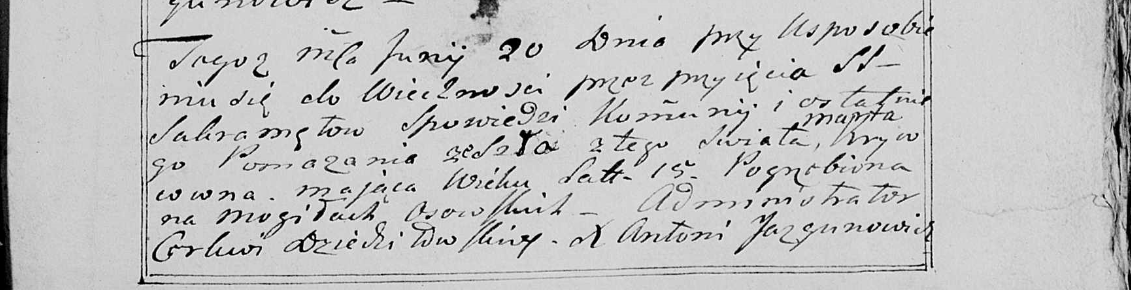 gunowicz –
Tegoż mca Junij 20 Dnia przy Usposobie
niu się do Wieczności przez przyięcia SS–
Sakramętow Spowiedzi Komunij i ostatnie
go Pomazania zeszła z tego Świata, marta Kryw
cowna. mająca Wieku Latt– 15– Pogrzebiona
na mogiłach Osowskich – Administrator
Cerkwi Dziedziłowskiey – X Antoni Jazgunowicz